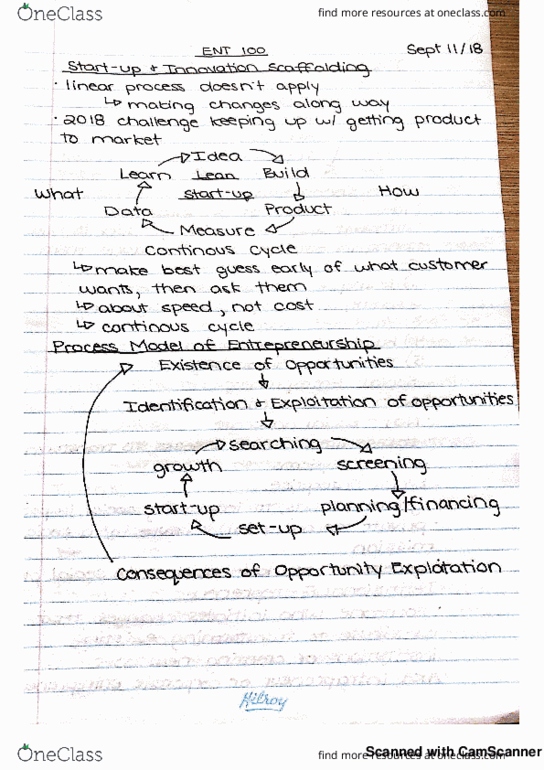 OneClass
find more resources at oneclass.com
ENT 100
Sept 11/18
Start-up + Innovation Scaffolding
· linear process doesn't apply
↳ making changes along way
· 2018 challenge keeping up w/ getting product
to market
Idea
Learn Lean Build
What start-up How
Data Product
Measure
Continous cycle
↳ make best guess early of what customer
wants, then ask them
↳ about speed, not cost
↳ continous cycle
Process Model of Entrepreneurship
Existence of Opportunities
Identification + Exploitation of opportunities
searching
growth screening
start-up planning/financing
set-up
Consequences of Opportunity Exploitation
Hilroy
OneClass
find more resources at oneclass.com
Scanned with CamScanner